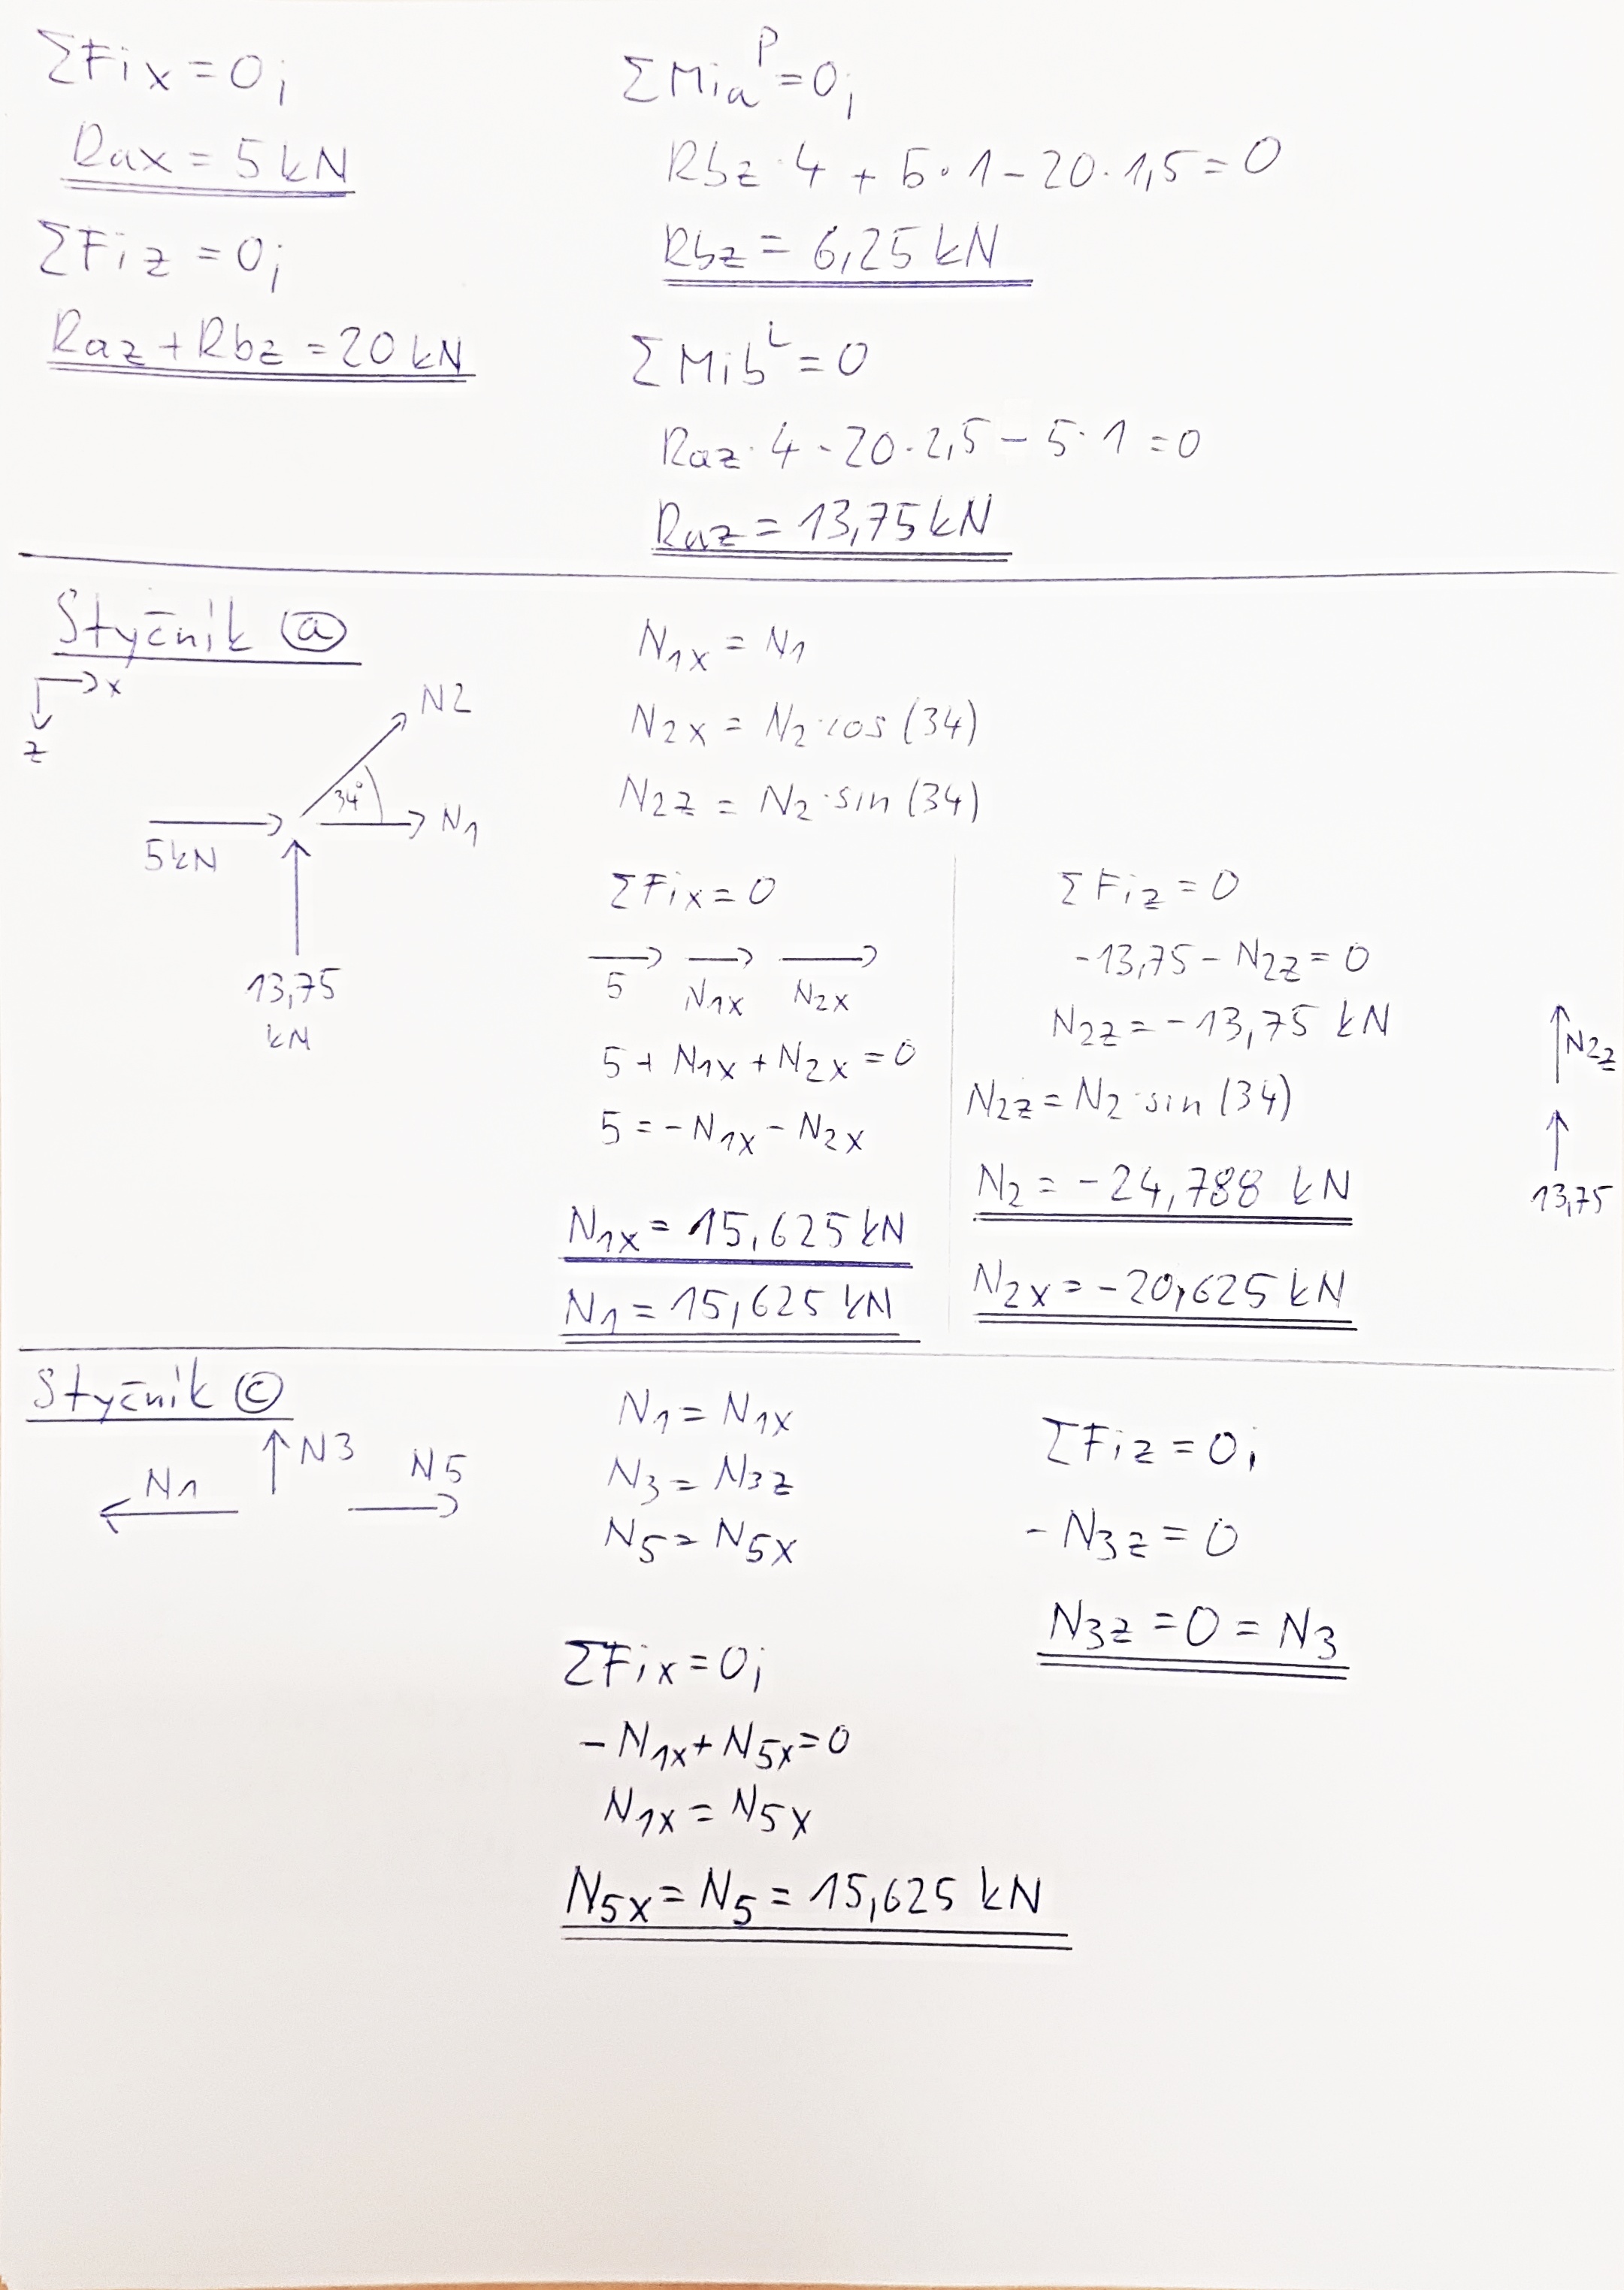 ΣFix = 0;
Rax = 5 kN
ΣFiz = 0;
Raz + Rbz = 20 kN
ΣMia^P = 0;
Rbz · 4 + 5 · 1 - 20 · 1,5 = 0
Rbz = 6,25 kN
ΣMib^L = 0
Raz · 4 - 20 · 2,5 - 5 · 1 = 0
Raz = 13,75 kN
Styčník ⓐ
x
z
N2
34°
N1
5 kN
13,75
kN
N1x = N1
N2x = N2 · cos (34)
N2z = N2 · sin (34)
ΣFix = 0
5 N1x N2x
5 + N1x + N2x = 0
5 = - N1x - N2x
N1x = 15,625 kN
N1 = 15,625 kN
ΣFiz = 0
-13,75 - N2z = 0
N2z = - 13,75 kN
N2z = N2 · sin (34)
N2 = - 24,788 kN
N2x = - 20,625 kN
N2z
13,75
Styčník ⓒ
N1
N3
N5
N1 = N1x
N3 = N3z
N5 = N5x
ΣFix = 0;
- N1x + N5x = 0
N1x = N5x
N5x = N5 = 15,625 kN
ΣFiz = 0;
- N3z = 0
N3z = 0 = N3